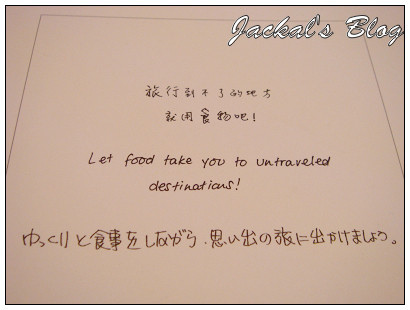 Jackal's Blog
旅行到不了的地方
就用食物吧!
Let food take you to untraveled
destinations!
ゆっくりと食事をしながら、思い出の旅に出かけましょう。